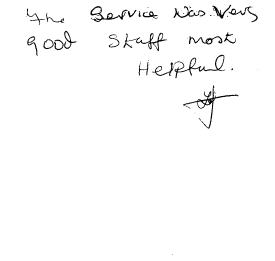 The Service Was. Very
good Staff most
Helpful.